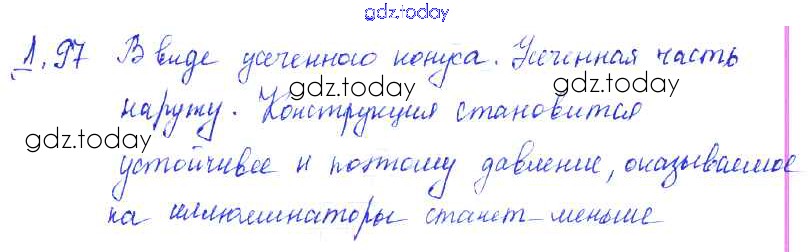 gdz.today
1.97 В виде усеченного конуса. Усеченная часть
gdz.today gdz.today
наружу. Конструкция становится
gdz.today
устойчивее и поэтому давление, оказываемое
gdz.today
на иллюминаторы станет меньше